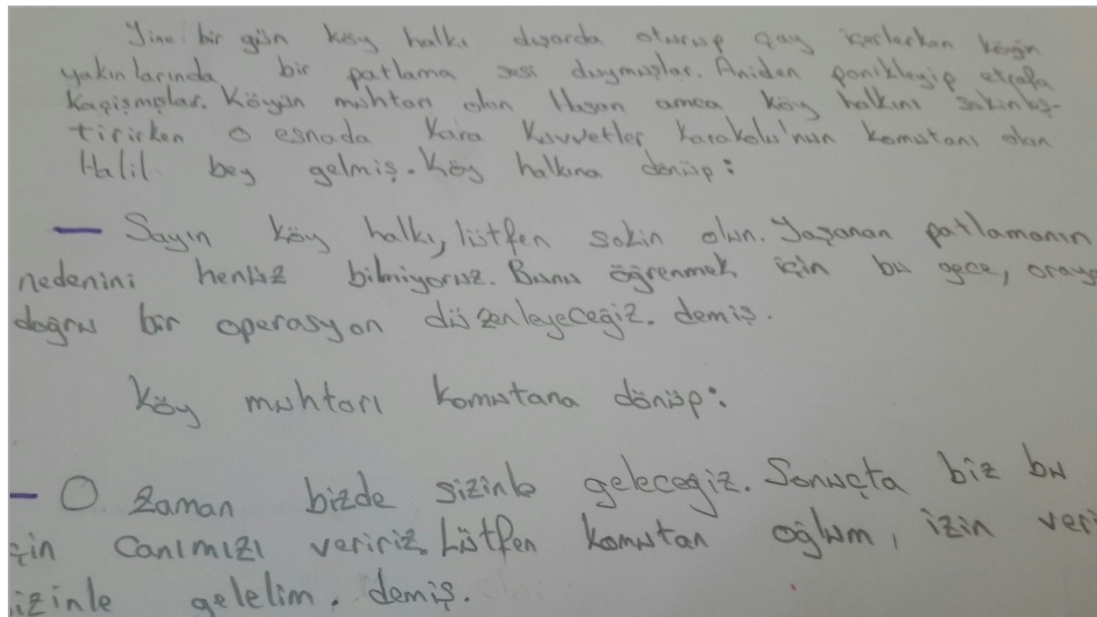 Yine bir gün köy halkı dışarda oturup çay içerlerken köyün
yakınlarında bir patlama sesi duymuşlar. Aniden panikleyip etrafa
kaçışmışlar. Köyün muhtarı olan Hasan amca köy halkını sakinleş-
tirirken o esnada Kara Kuvvetler Karakolu'nun komutanı olan
Halil bey gelmiş. Köy halkına dönüp:
— Sayın köy halkı, lütfen sakin olun. Yaşanan patlamanın
nedenini henüz bilmiyoruz. Bunu öğrenmek için bu gece, oraya
doğru bir operasyon düzenleyeceğiz. demiş.
Köy muhtarı komutana dönüp:
— O zaman bizde sizinle geleceğiz. Sonuçta biz bu
çin canımızı veririz. Lütfen komutan oğlum, izin veri
izinle gelelim. demiş.